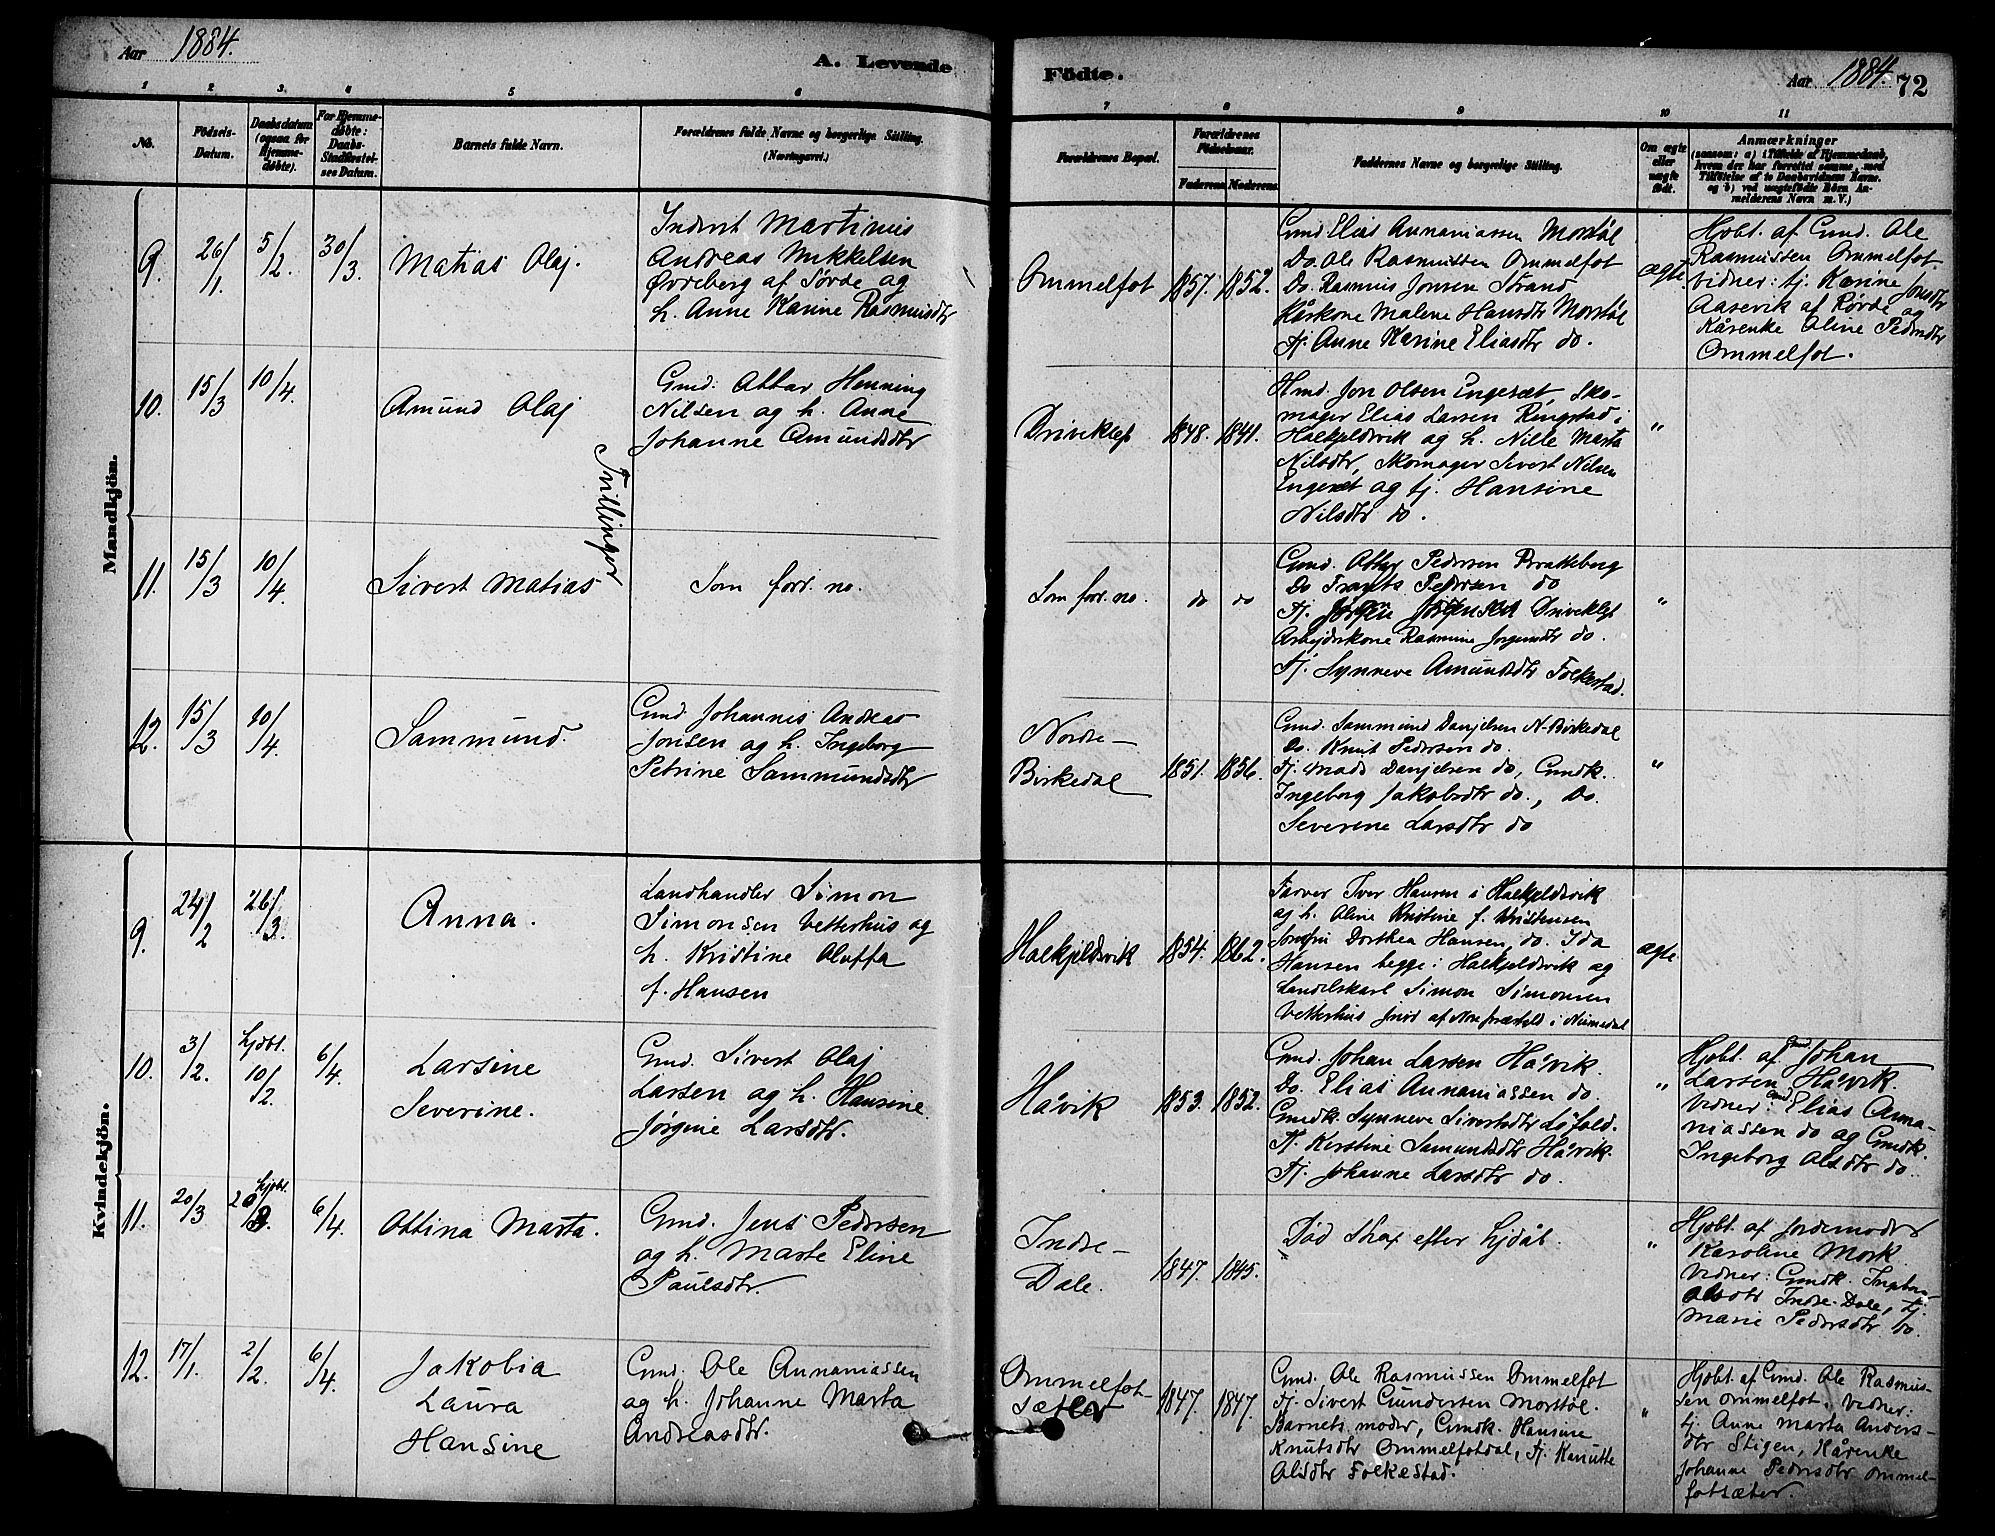 Aar 1884.
A. Levende
Födte.
Aar 1884. 72
1 2 3. 4 5 6
7 8 9 10 11
No.
Födsels-
Datum.
Daabsdatum
(ogsaa for
Hjemme-
døbte).
For Hjemme-
døbte:
Daabs-
Stadfæstel-
ses Datum.
Barnets fulde Navn.
Forældrenes fulde Navne og borgerlige Stilling.
(Næringsvei.)
Forældrenes Bopæl.
Forældrenes
Fødselsaar.
Faderens. Moderens.
Faddernes Navne og borgerlige Stilling.
Om ægte
eller
uægte
født.
Anmærkninger
(saasom: a) i Tilfælde af Hjemmedaab,
hvem der har forrettet samme, med
Tilføielse af to Daabsvidners Navne,
og b) ved uægtefødte Börn An-
melderens Navn m. V.)
Mandkjön.
9. 26/1 5/2. 30/3. Matias Olaj.
Inderst Martinus
Andreas Mikkelsen
Ørreberg af Førde og
h. Anne Karine Rasmusdtr
Ommelfot 1857. 1852.
Gmd Elias Annaniassen Morstøl
Do. Ole Rasmussen Ommelfot
Do. Rasmus Jonsen Strand
Kårkone Malene Hansdtr Morstøl
Tj. Anne Karine Eliasdtr do.
ægte
Hjdbt. af Gmd. Ole
Rasmussen Ommelfot.
Vidner: tj. Karine Jonsdtr
Aasevik af Rørde og
Kårenke Oline Pedersdtr
Ommelfot.
10. 15/3 10/4. Amund Olaj
Tvillinger
Gmd: Attar Henning
Nilsen og h. Anne
Johanne Amundsdtr
Driveklep 1848. 1841.
Hmd. Jon Olsen Engesæt, Sko-
mager Elias Larsen Ringstad i
Halkjeldsvik og h. Nille Marta
Nilsdtr, Skomager Sivert Nilsen
Engeset og tj. Hansine
Nilsdtr do.
"
11. 15/3 10/4. Sivert Matias
Som forr. no.
Som forr. no. do do
Gmd. Attar Pedersen Bratteberg
Do Frants Pedersen do
Tj. Jørgen Jørgensen Driveklep
Arbejdskone Rasmine Jørgensdtr do.
Tj. Synneve Amundsdtr Folkestad.
"
12. 15/3 10/4. Sammund.
Gmd. Johannes Andreas
Jonsen og h. Ingeborg
Petrine Sammundsdtr
Nordre-
Birkedal 1851. 1856.
Gmd. Sammund Danjelsen N-Birkedal
Do. Knut Pedersen do.
Tj. Mads Danjelsen do, Gmdk.
Ingeborg Jakobsdtr do., Do.
Severine Larsdtr do
"
Kvindekjön.
9. 24/2 26/3. Anna.
Landhandler Simon
Simonsen Vetterhus og
h. Kristine Oluffa
f. Hansen
Halkjeldsvik 1854. 1862.
Farver Iver Hansen i Halkjeldsvik
og h. Oline Kristine f. Kristensen
Dorthea Hansen, do. Ida
Hansen begge i Halkjeldsvik og
Landelskarl Simon Simonsen
Vetterhus
ægte.
10. 3/2. hjdbt. 10/2 6/4. Larsine
Severine.
Gmd. Sivert Olaj
Larsen og h. Hansine
Jørgine Larsdtr.
Håvik 1853. 1852.
Gmd. Johan Larsen Håvik.
Do. Elias Annaniassen do.
Gmdk. Synneve Sivertsdtr Løfold.
Tj. Kerstine Samundsdtr Håvik.
Tj. Johanne Larsdtr do.
"
Hjdbt. af Gmd. Johan
Larsen Håvik.
Vidner: Gmd Elias Anna-
niassen do og Gmdk.
Ingeborg Olsdtr do.
11. 20/3 hjdbt. 20/3. 6/4. Ottina Marta.
Gmd. Jens Pedersen
og h. Marte Eline
Paulsdtr.
Indre-
Dale. 1847. 1845.
Død strax efter hjdåb.
"
Hjdbt. af Jordemoder
Karoline Mork
Vidner: Gmdk. Ingeborg
Olsdtr Indre-Dale, tj.
Marie Pedersdtr do.
12. 17/1. 2/2 6/4. Jakobia
Laura
Hansine
Gmd. Ole Annaniassen
og h. Johanne Marta
Andreasdtr.
Ommelfot-
sæter 1847. 1847.
Gmd. Ole Rasmussen Ommelfot
Tj. Sivert Gundersen Morstøl.
Barnets moder, Gmdk. Hansine
Knutsdtr Ommelfotdal, tj. Kanutte
Olsdtr Folkestad.
"
Hjdbt. af Gmd. Ole Rasmus-
sen Ommelfot. Vidner:
tj. Anne Marta Anders-
dtr Stigen, Kårenke
Johanne Pedersdtr Ommel-
fotsæter.